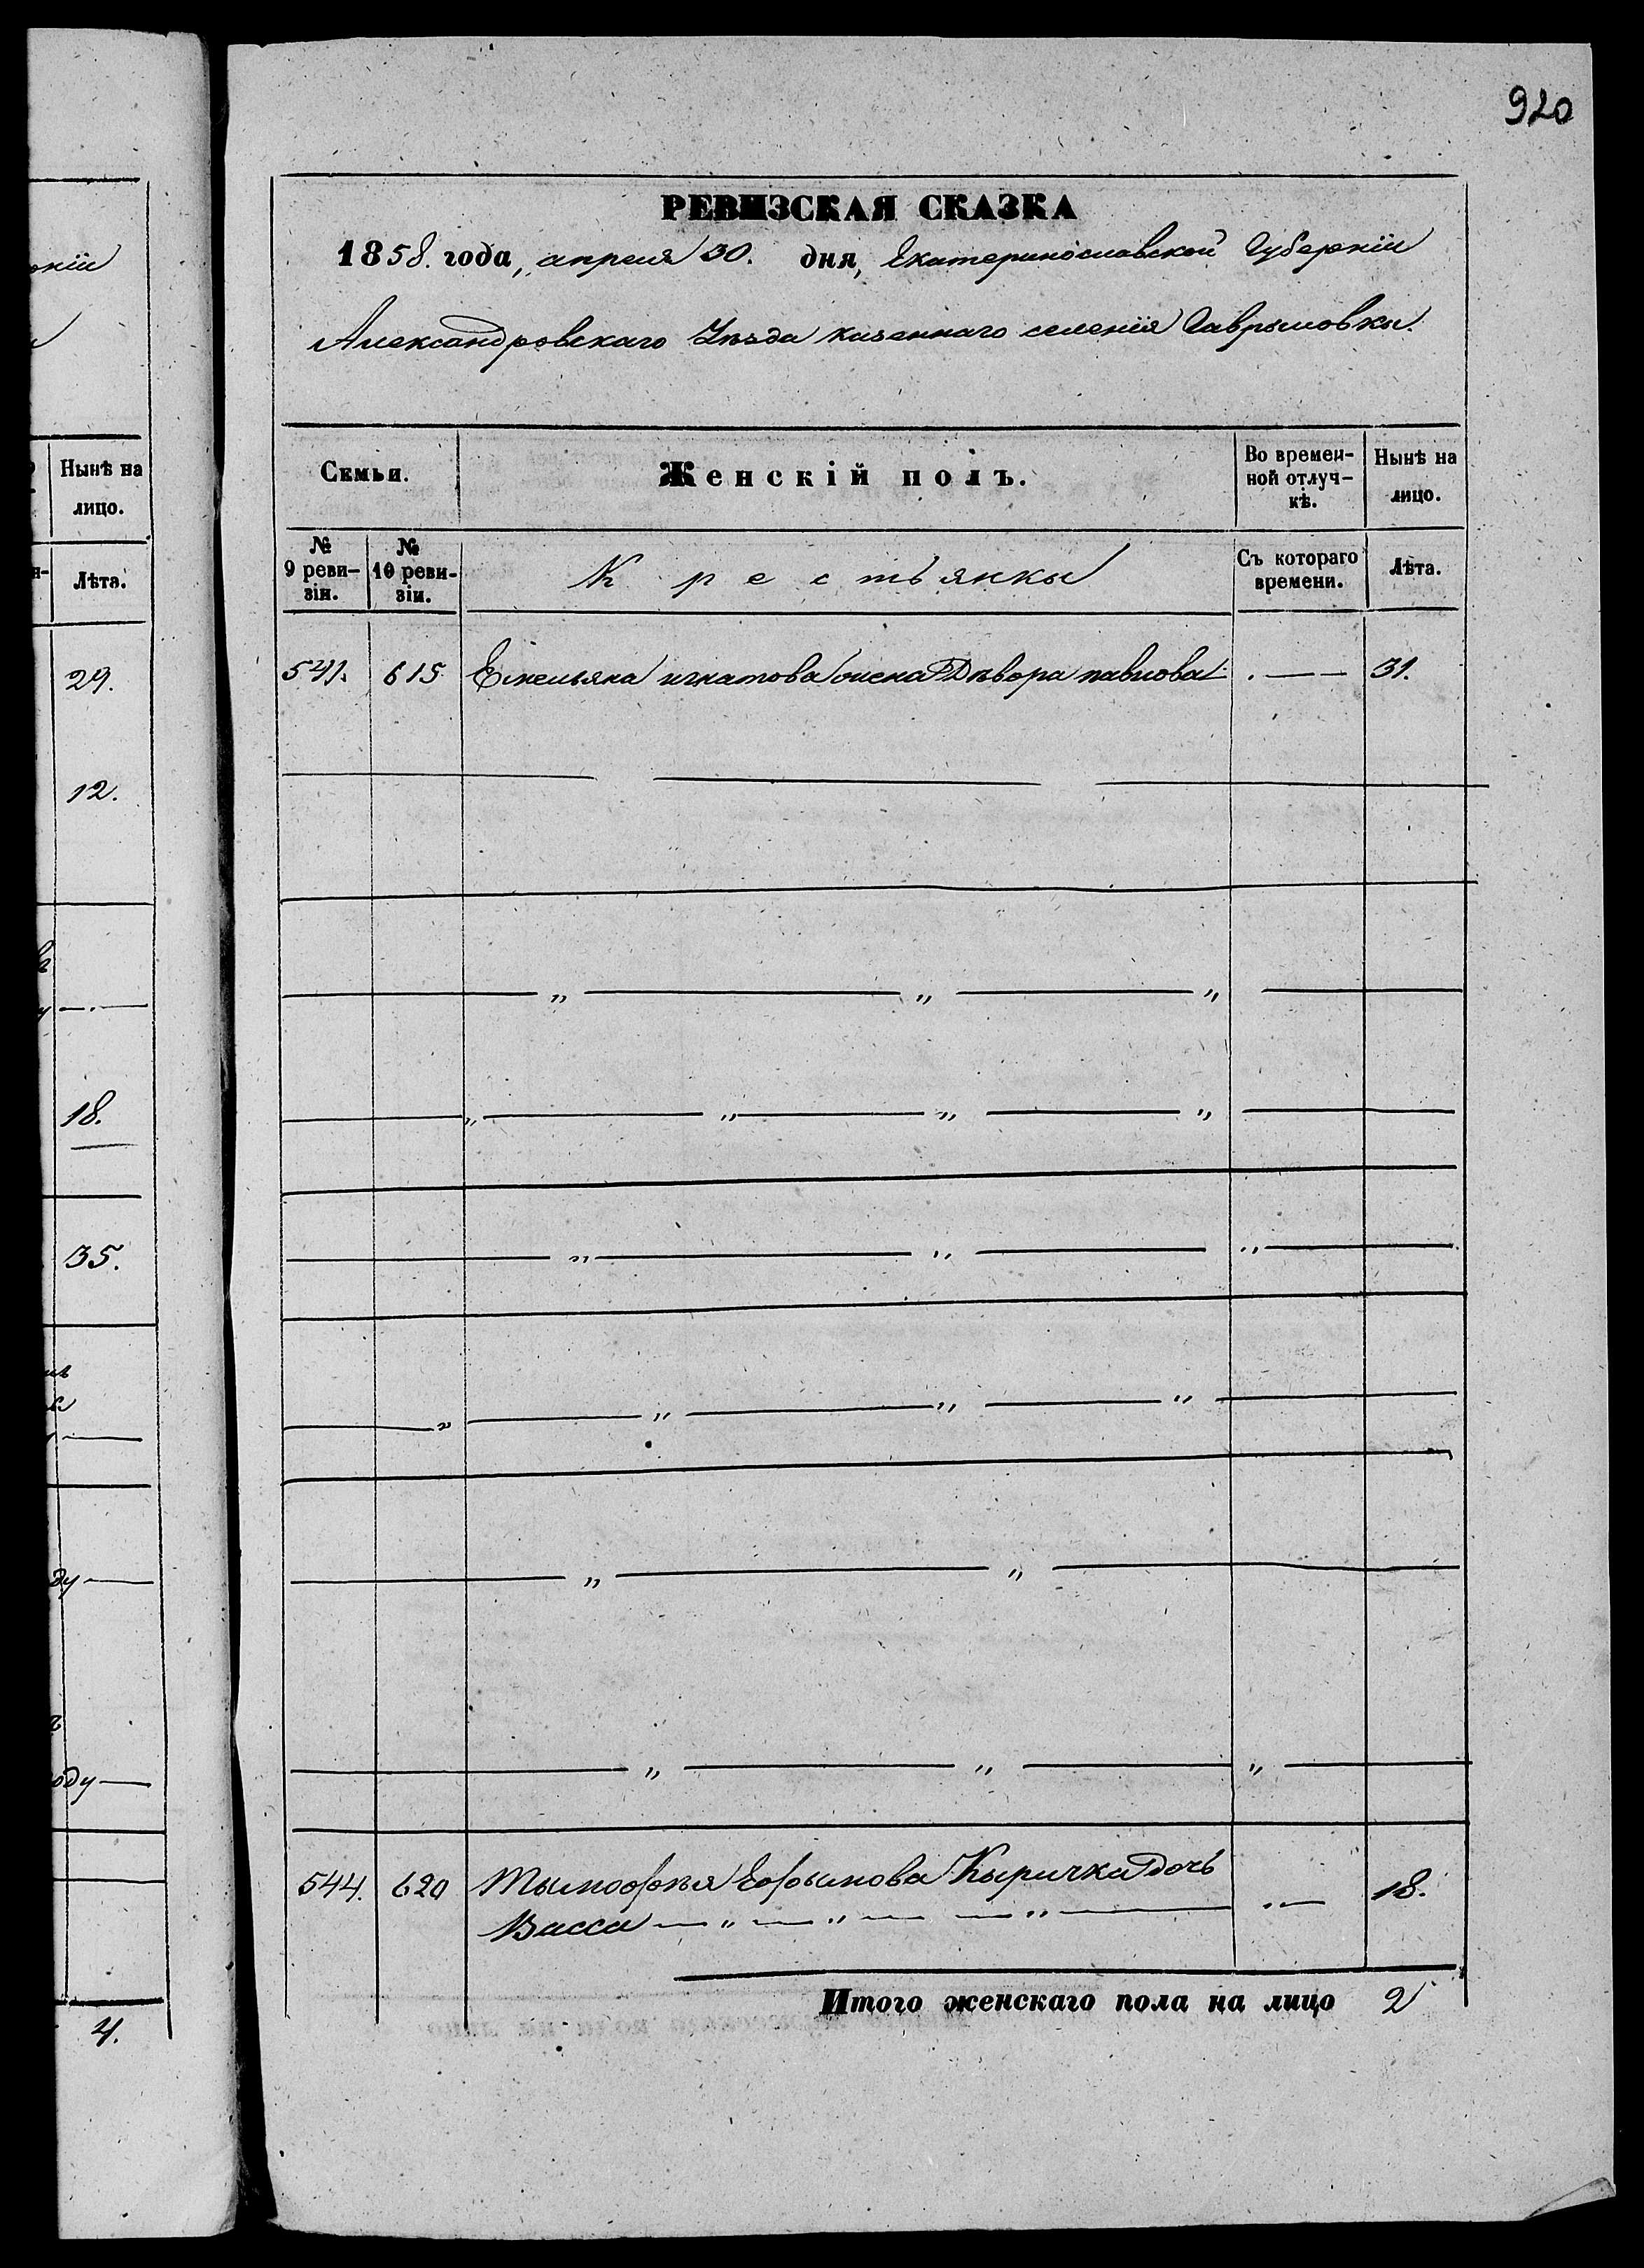 920
РЕВИЗСКАЯ СКАЗКА
1858. года, апреля 30. дня, Екатеринославской Губернии
Александровскаго Уѣзда казеннаго селенія Гаврыловки.
Семьи.
Женскій полъ.
Во времен-
ной отлуч-
кѣ.
Нынѣ на
лицо.
№
9 реви-
зіи.
№
10 реви-
зіи.
Крестьянкы
Съ котораго
времени.
Лѣта.
541. 615 Емельяна игнатова жена Дѣвора павлова 31.
544. 620 Тымофѣя Ефымова Кыричка дочь
Васса — „ — „ — — „ — 18.
Итого женскаго пола на лицо 2
Нынѣ на
лицо.
Лѣта.
29.
12.
18.
35.
4.